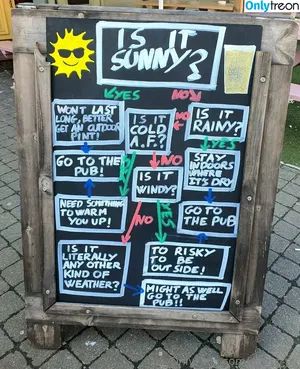 Onlytreon
IS IT
SUNNY?
YES
NO
WON'T LAST
LONG, BETTER
GET AN OUTDOOR
PINT!
IS IT
COLD
A.F.?
NO
IS IT
RAINY?
YES
GO TO THE
PUB!
YES
NO
STAY
INDOORS
WHERE
IT'S DRY
IS IT
WINDY?
NEED SOMETHING
TO WARM
YOU UP!
NO
YES
GO TO
THE PUB
IS IT
LITERALLY
ANY OTHER
KIND OF
WEATHER?
TO RISKY
TO BE
OUT SIDE!
MIGHT AS WELL
GO TO THE
PUB!!